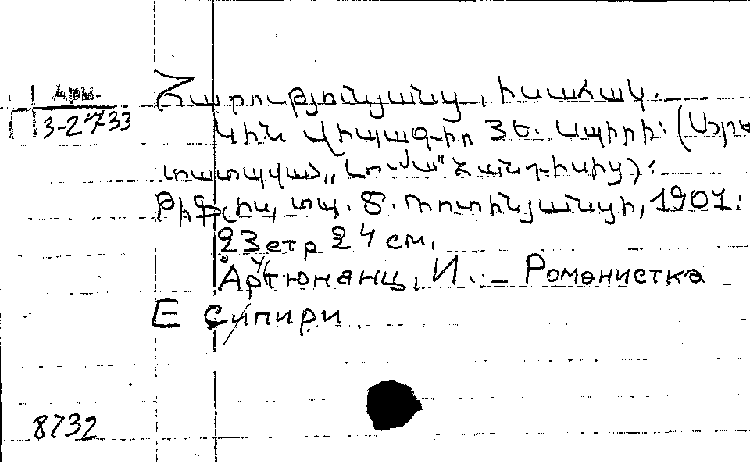 Арм.
3-2733
Հարությունյանց, Իսահակ.
Կին վիպագիր ЗЕ. Սպիրի: (Արտ
տատպված „Լումա" հանդիսից):
Թիֆլիս, տպ. Ծ. Ռոտինյանցի, 1901:
23 стр 24 см.
Арутюнянц, И. — Романистка
Е Спири
8732